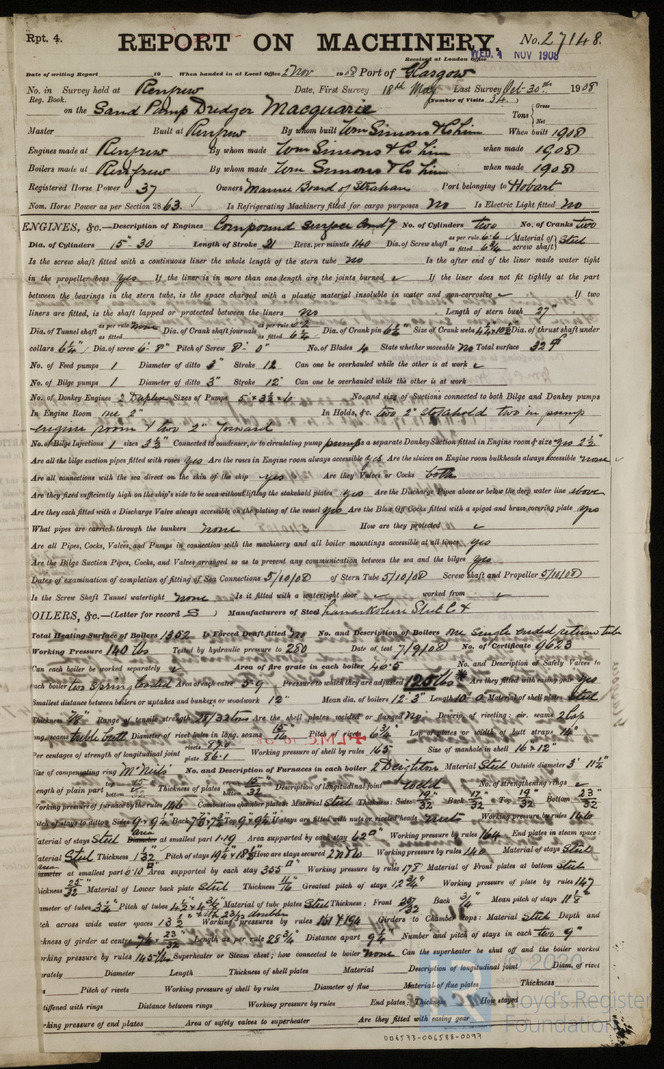 Rpt. 4.
REPORT ON MACHINERY. No. 27148.
Received at London Office WED. 4 NOV 1908
Date of writing Report 19 When handed in at Local Office 2 Nov 1908 Port of Glasgow
No. in Survey held at Renfrew Date, First Survey 18th May Last Survey Oct. 30th 1908
Reg. Book. (Number of Visits 34)
on the Sand Pump Dredger Macquarie Tons Gross Net
Master Built at Renfrew By whom built Wm Simons & Co Lim When built 1908
Engines made at Renfrew By whom made Wm Simons & Co Lim when made 1908
Boilers made at Renfrew By whom made Wm Simons & Co Lim when made 1908
Registered Horse Power 37 Owners Marine Board of Strahan Port belonging to Hobart
Nom. Horse Power as per Section 28 63. Is Refrigerating Machinery fitted for cargo purposes No Is Electric Light fitted No
ENGINES, &c.—Description of Engines Compound surface Condg No. of Cylinders two No. of Cranks two
Dia. of Cylinders 15" 30 Length of Stroke 21 Revs. per minute 140 Dia. of Screw shaft as per rule as fitted Material of screw shaft Steel
Is the screw shaft fitted with a continuous liner the whole length of the stern tube No Is the after end of the liner made water tight
in the propeller boss Yes If the liner is in more than one length are the joints burned If the liner does not fit tightly at the part
between the bearings in the stern tube, is the space charged with a plastic material insoluble in water and non-corrosive If two
liners are fitted, is the shaft lapped or protected between the liners No Length of stern bush 27"
Dia. of Tunnel shaft as per rule None as fitted Dia. of Crank shaft journals as per rule as fitted 6¼ Dia. of Crank pin 6½" Size of Crank webs Dia. of thrust shaft under
collars 6¼" Dia. of screw 6'-8" Pitch of Screw 8'-0" No. of Blades 4 State whether moveable No Total surface 32 ft
No. of Feed pumps 1 Diameter of ditto 3" Stroke 12 Can one be overhauled while the other is at work
No. of Bilge pumps 1 Diameter of ditto 3" Stroke 12 Can one be overhauled while the other is at work
No. of Donkey Engines 2 Duplex Sizes of Pumps No. and size of Suctions connected to both Bilge and Donkey pumps
In Engine Room one 2" In Holds, &c. two 2" stokehold two in pump
engine room & two 2" forward
No. of Bilge Injections 1 sizes 3½" Connected to condenser, or to circulating pump pump Is a separate Donkey Suction fitted in Engine room & size Yes 2½"
Are all the bilge suction pipes fitted with roses Yes Are the roses in Engine room always accessible Yes Are the sluices on Engine room bulkheads always accessible none
Are all connections with the sea direct on the skin of the ship Yes Are they Valves or Cocks both
Are they fixed sufficiently high on the ship's side to be seen without lifting the stokehold plates Yes Are the Discharge Pipes above or below the deep water line above
Are they each fitted with a Discharge Valve always accessible on the plating of the vessel Yes Are the Blow Off Cocks fitted with a spigot and brass covering plate Yes
What pipes are carried through the bunkers none How are they protected
Are all Pipes, Cocks, Valves, and Pumps in connection with the machinery and all boiler mountings accessible at all times Yes
Are the Bilge Suction Pipes, Cocks, and Valves arranged so as to prevent any communication between the sea and the bilges Yes
Dates of examination of completion of fitting of Sea Connections 5/10/08 of Stern Tube 5/10/08 Screw shaft and Propeller 5/10/08
Is the Screw Shaft Tunnel watertight none Is it fitted with a watertight door worked from
OILERS, &c.—(Letter for record S) Manufacturers of Steel Lanarkshire Steel Co
Total Heating Surface of Boilers 1352 Is Forced Draft fitted no No. and Description of Boilers One single ended return tube
Working Pressure 140 lbs Tested by hydraulic pressure to 280 Date of test 7/9/08 No. of Certificate 9623
Can each boiler be worked separately Area of fire grate in each boiler 40.5 No. and Description of Safety Valves to
each boiler two Spring loaded Area of each valve 5.9 Pressure to which they are adjusted 120 lbs Are they fitted with easing gear Yes
Smallest distance between boilers or uptakes and bunkers or woodwork 12" Mean dia. of boilers 12'3" Length 10'0" Material of shell plates Steel
Thickness Range of tensile strength 28/32 tons Are the shell plates welded or flanged No Descrip. of riveting: cir. seams 2 lap
long. seams treble butt Diameter of rivet holes in long. seams 15/16 Pitch of rivets 6¾" Lap of plates or width of butt straps 14"
Per centages of strength of longitudinal joint rivets plate 86.1 Working pressure of shell by rules 165 Size of manhole in shell 16 x 12"
Size of compensating ring McNeils No. and Description of Furnaces in each boiler 2 Deighton Material Steel Outside diameter 3' 11¼"
Length of plain part top bottom Thickness of plates crown bottom Description of longitudinal joint Weld No. of strengthening rings
Working pressure of furnace by the rules 146 Combustion chamber plates: Material Steel Thickness: Sides 19/32 Back 17/32 Top 19/32 Bottom 23/32
Pitch of stays to ditto: Sides Back Top If stays are fitted with nuts or riveted heads nuts Working pressure by rules 146
Material of stays Steel Area at smallest part 1.19 Area supported by each stay 62 Working pressure by rules 164 End plates in steam space:
Material Steel Thickness Pitch of stays How are stays secured Working pressure by rules 140 Material of stays Steel
Area at smallest part Area supported by each stay 355 Working pressure by rules 178 Material of Front plates at bottom Steel
Thickness 25/32 Material of Lower back plate Steel Thickness 11/16 Greatest pitch of stays Working pressure of plate by rules 147
Diameter of tubes 3¼" Pitch of tubes Material of tube plates Steel Thickness: Front Back ¾" Mean pitch of stays
Pitch across wide water spaces 13½" Working pressures by rules Girders to Chamber tops: Material Steel Depth and
thickness of girder at centre Length as per rule 28¾ Distance apart 9¼ Number and pitch of stays in each two 9"
Working pressure by rules 145 lbs Superheater or Steam chest; how connected to boiler None Can the superheater be shut off and the boiler worked
separately Diameter Length Thickness of shell plates Material Description of longitudinal joint Diam. of rivet
Pitch of rivets Working pressure of shell by rules Diameter of flue Material of flue plates Thickness
stiffened with rings Distance between rings Working pressure by rules End plates: Thickness How stayed
Working pressure of end plates Area of safety valves to superheater Are they fitted with easing gear
© 2020
Lloyd's Register
Foundation
006573-006588-0097